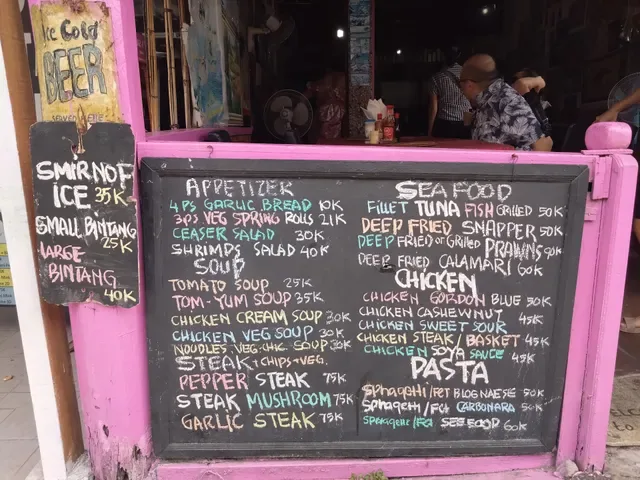 Ice Cold
BEER
SMIRNOF
ICE 35K
SMALL BINTANG
25K
LARGE
BINTANG
40K
APPETIZER
4PS GARLIC BREAD 10K
3PS VEG SPRING ROLLS 21K
CEASER SALAD 30K
SHRIMPS SALAD 40K
SOUP
TOMATO SOUP 25K
TOM-YUM SOUP 35K
CHICKEN CREAM SOUP 30K
CHICKEN VEG SOUP 30K
NOODLES VEG.CHIC. SOUP 30K
STEAK + CHIPS + VEG.
PEPPER STEAK 75K
STEAK MUSHROOM 75K
GARLIC STEAK 75K
SEA FOOD
FILLET TUNA FISH GRILLED 50K
DEEP FRIED SNAPPER 50K
DEEP FRIED or GRILLED PRAWNS 90K
DEEP FRIED CALAMARI 60K
CHICKEN
CHICKEN GORDON BLUE 50K
CHICKEN CASHEWNUT 45K
CHICKEN SWEET SOUR 45K
CHICKEN STEAK / BASKET 45K
CHICKEN SOYA SAUCE 45K
PASTA
SPHAGETTI / FET BLOGNAESE 50K
SPHAGETTI / FET CARBONARA 50K
SPHAGETTI / FET SEE FOOD 60K